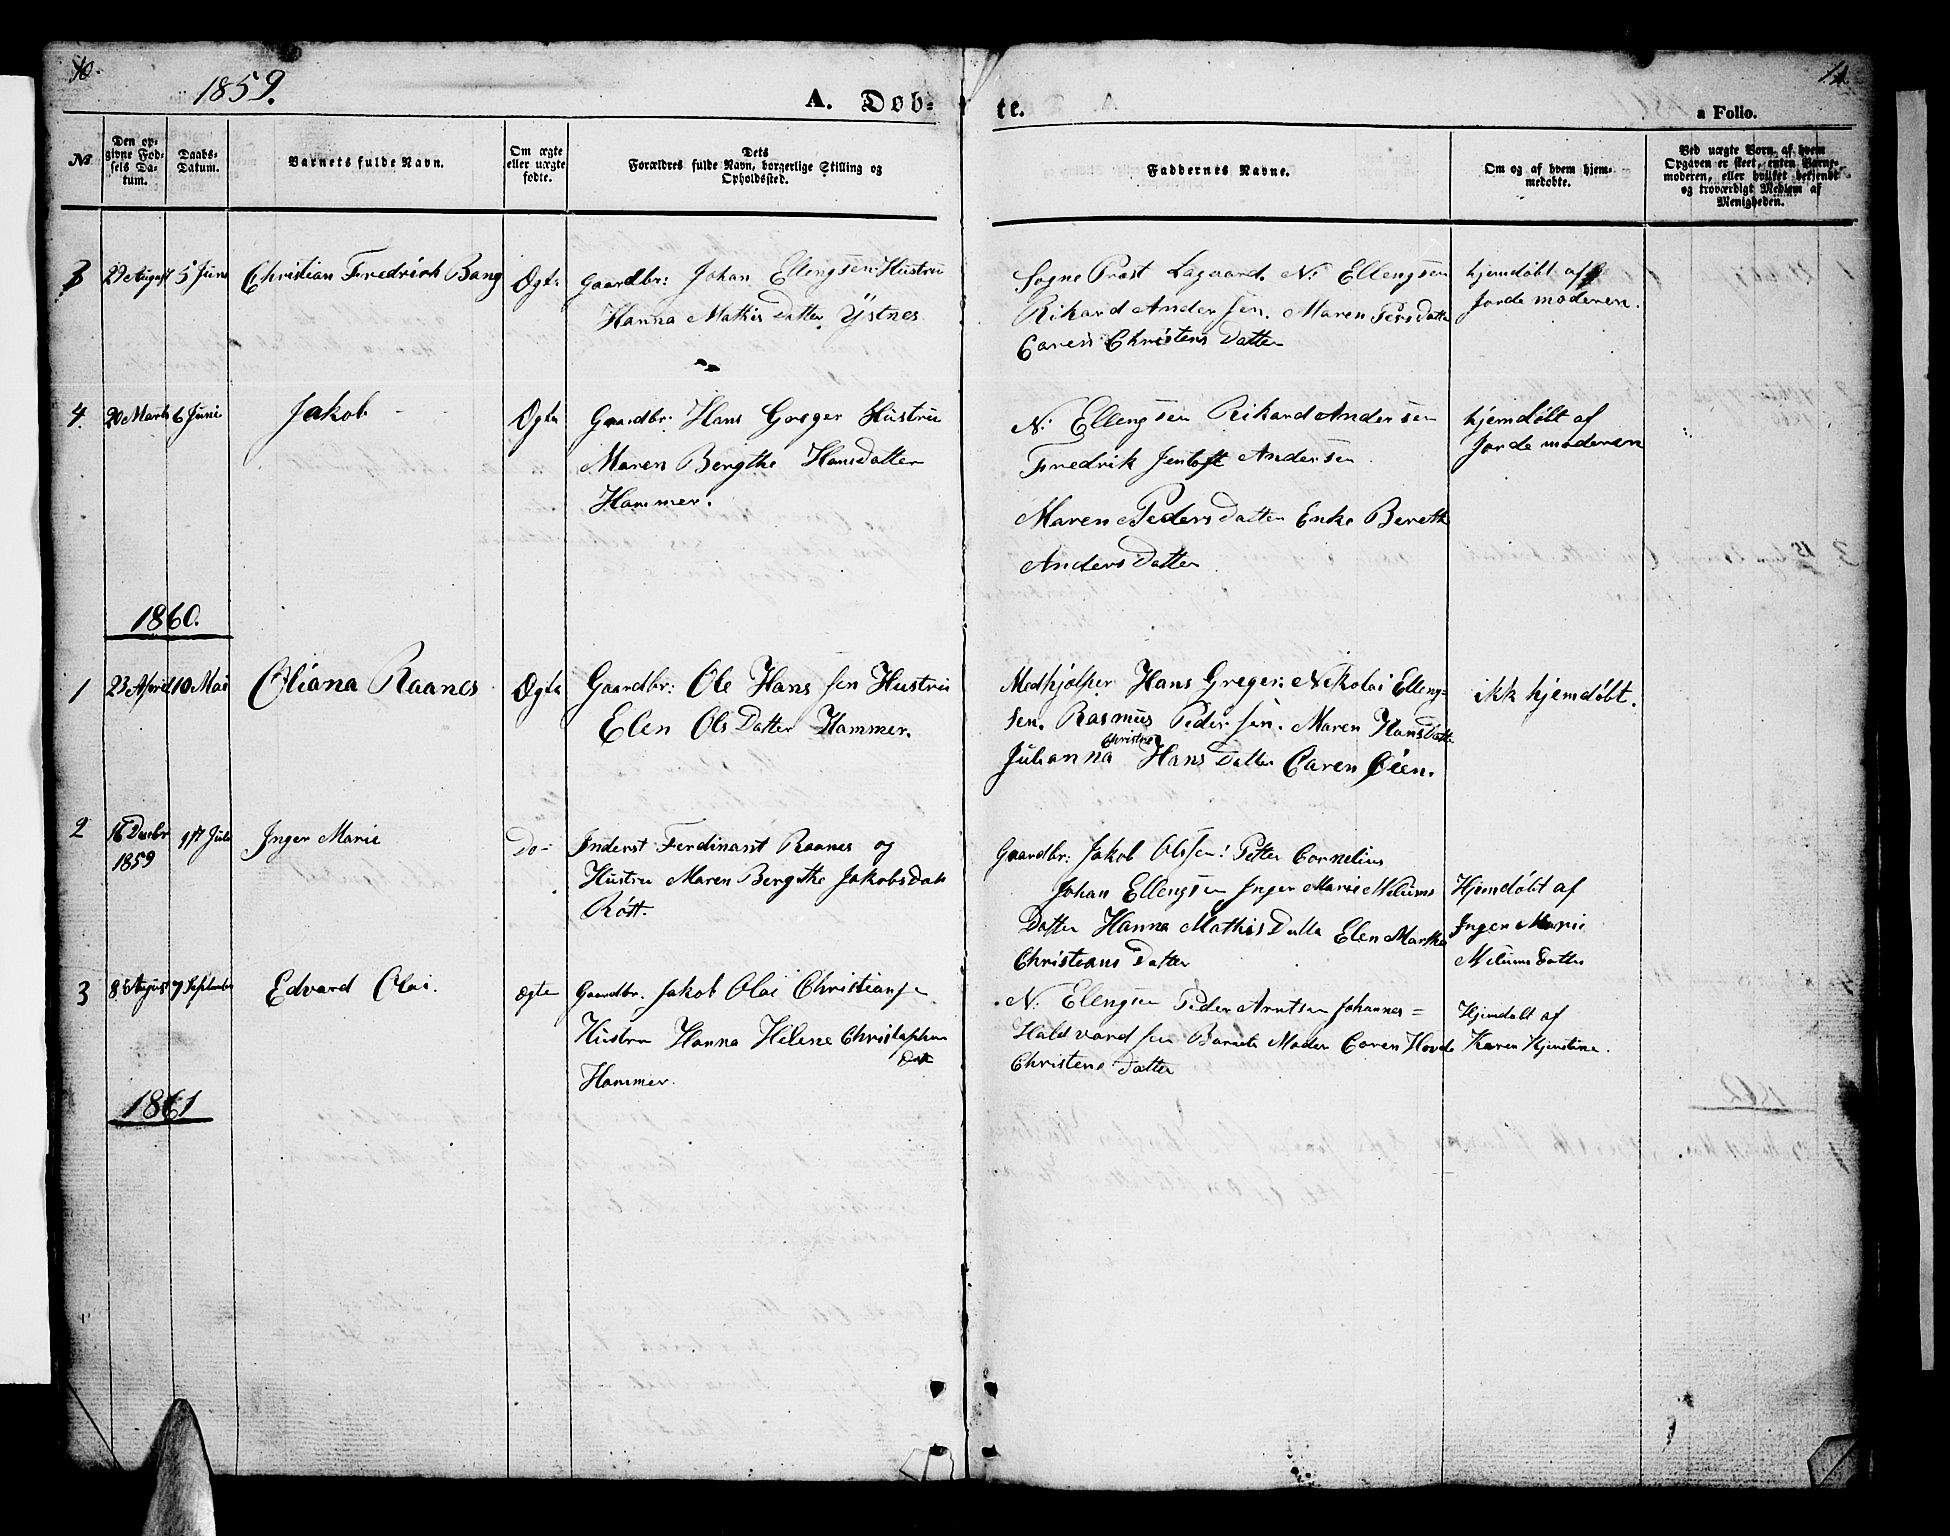 10.
1859.
A. Døb-
te.
a Folio.
11.
No
Den op-
givne Fød-
sels Da-
tum.
Daabs-
Datum.
Barnets fulde Navn.
Om ægte
eller uægte
fødte.
Dets
Forældres fulde Navn, borgerlige Stilling og
Opholdssted.
Faddernes Navne.
Om og af hvem hjem-
medøbte.
Ved uægte Børn, af hvem
Opgaven er skeet, enten Barne-
moderen, eller hvilket bekjendt
og troværdigt Medlem af
Menigheden.
3 29 August 5 Juni Christian Fredrich Bang Ægte Gaardbr: Johan Ellengsen Hustru
Hanna Mathis Datter Ystnes
Sogne Præst Lagaard. N: Ellengsen
Rikard Andersen. Maren Persdatter
Caren Christens Datter
hjemdøbt af
Jordemoderen.
4. 20 Marts 6 Juni Jakob Ægte Gaardbr: Hans Greger Hustru
Maren Bergthe Hansdatter
Hammer.
N: Ellengsen Rikard Andersen
Fredrik Jentoft Andersen
Maren Peders Datter Enke Bereth
Anders Datter
hjemdøbt af
Jordemoderen
1860.
1 23 April 10 Mai Oliana Raanes Ægte Gaardbr: Ole Hans sen Hustru
Elen Ols Datter Hammer.
Medhjølper Hans Greger: Nikolai Elleng-
sen. Rasmus Peder sen. Maren Hans Datte
Christne
Julianna Hans Datter Caren Øien.
ikk hjemdøbt.
2 16 Decbr
1859 17 Juli Inger Marie Do- Inderst Ferdinant Raanes og
Hustru Maren Bergthe Jakobs Datt
Røst.
Gaardbr: Jakob Olssen: Petter Cornelius
Johan Ellengsen Inger Marie Melums
Datter Hanna Mathis Datte Elen Martha
Christians Datter
Hjemdøbt af
Inger Marie
Melums Datter
3 8 August 7 September Edvard Olai. Ægte Gaardbr. Jakob Olai Christiansen
Hustru Hanna Helene Christophers
Dat
Hammer.
N: Elengsen Peder Arntsen Johannes-
Haldvardsen Barnets Moder Caren Hovde
Christene Datter
Hjemdøbt af
Karen Kjerstine.
1861